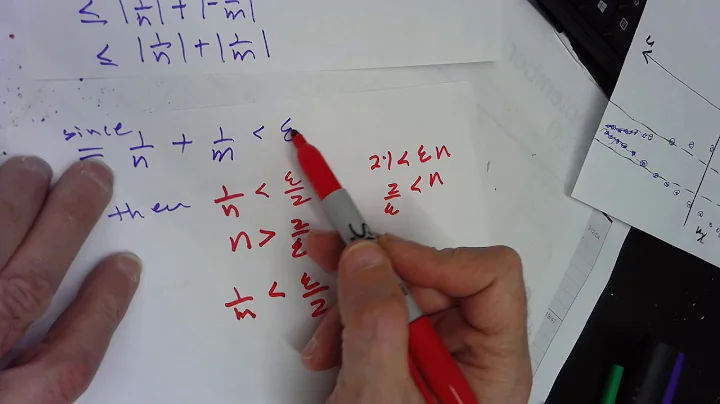 ≤ |1/n| + |-1/m|
≤ |1/n| + |1/m|
since
= 1/n + 1/m < ε
then 1/n < ε/2
n > 2/ε
1/m < ε/2
2·1 < εn
2/ε < n